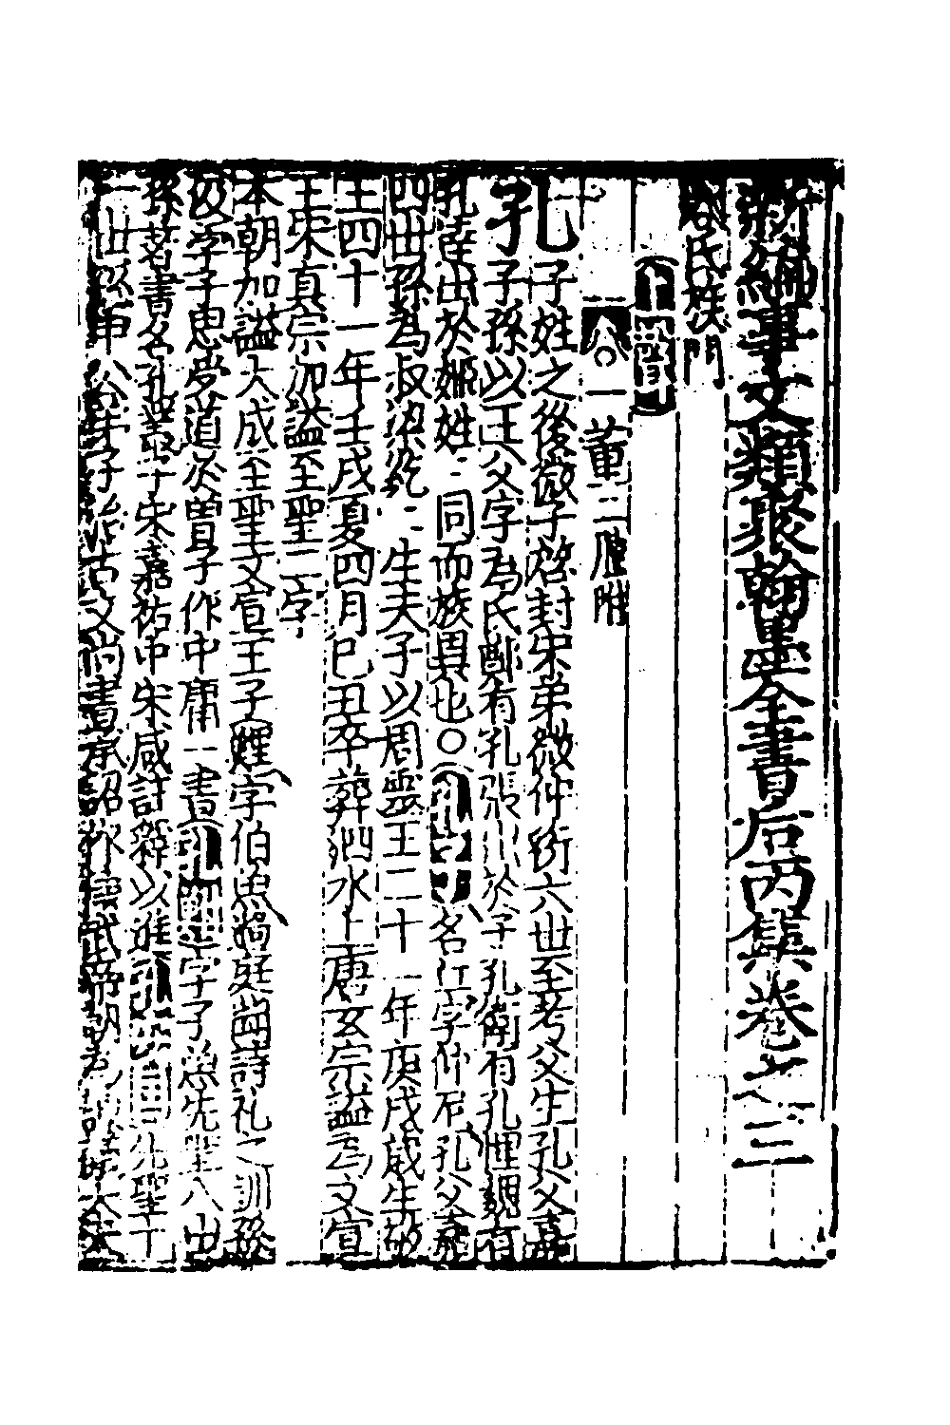 新編事文類聚翰墨全書后丙集卷之三
氏族門
上聲
一董二腫附
孔
子姓之後微子啓封宋弟微仲衍六世至考父生孔父嘉
子孫以王父字為氏鄭有孔張出於子孔衛有孔悝魏有
孔達出於姬姓同而族異也○孔子名丘字仲尼孔父嘉
四世孫為叔梁紇生夫子以周靈王二十一年庚戌歲生敬
王四十一年壬戌夏四月己丑卒葬泗水上唐玄宗謚為文宣
王宋真宗加謚至聖二字
本朝加謚大成至聖文宣王子鯉字伯魚過庭聞詩礼之訓孫
伋字子思受道於曾子作中庸一書孔鮒字子魚先聖八世
孫著書名孔叢子宋嘉祐中宋咸註釋以進孔安国先聖十
一世孫申公弟子治古文尚書承詔作傳武帝朝